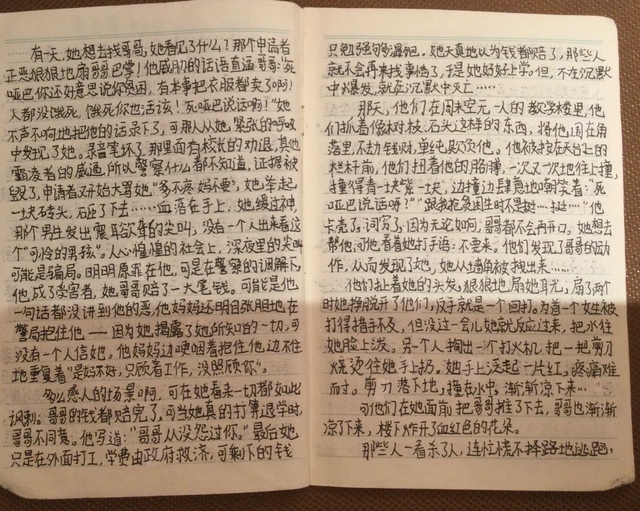 有一天,她想去找哥哥,她看见了什么?那个申请者
正恶狠狠地扇哥哥巴掌!他威胁的话语直逼哥哥:"死
哑巴你还好意思说你贫困,有本事把衣服都卖了啊!
人都没饿死,饿死你也活该!死哑巴说话啊!"她
不声不响地把他的话录下了,可那人从她紧张的呼吸
中发现了她。录音笔坏了,那里面有校长的劝退,其他
霸凌者的威逼,所以警察什么都不知道,证据被
毁了,申请者又开始大骂她"多不疼妈不要",她举起
一块砖头,石砸了下去……血落在手上,她缓过神
那个男生发出震耳欲聋的尖叫,没有一个人出来看这
个"可怜的男孩"。人心惶惶的社会上,深夜里的尖叫
可能是骗局。明明原罪在他,可是在警察的调解下,
他成了受害者,她哥哥赔了一大笔钱。可能是他
一句话都没讲到他的恶,他妈妈还明目张胆地在
警局抱住他——因为她揭露了她所知的一切,可
没有一个人信她。他妈妈边哽咽着抱住他,边不住
地重复着"是妈不好,只顾着工作,没照顾你"。
多么感人的场景啊,可在她看来一切都如此
讽刺。哥哥的钱都赔完了,可当她真的打算退学时,
哥哥不同意。他写道:"哥哥从没怨过你。"最后她
只是在外面打工,学费由政府救济,可剩下的钱
只勉强够多灌饱。她天真地以为钱都赔了,那些人
就不会再来找事儿了,于是她好好上学。但,不在沉默
中爆发,就在沉默中灭亡……
那天,他们在周末空无一人的教学楼里,他
们抓着像树枝、石头这样的东西,将他围在角
落里,不劫钱财,单纯莫欺负他。他被拉在天台上的
栏杆前,他们扭着他的胳膊,一次又一次地往上撞,
撞得青一块紫一块,边撞边肆意地嘲笑着:"死
哑巴说话呀?""跟我抢免调生时不是挺…挺……"他
卡壳了,词穷了,因为无论如何,哥哥都不会再开口,她想去
帮他,可他看着她打手语:不要来,他们发现了哥哥的动
作,从而发现了她,她从墙角被拽出来……
他们扯着她的头发,狠狠地扇她耳光,扇了两个
时她挣脱开了他们,反手就是一个回打。为首一个女生被
打得措手不及,但没过一会儿她就反应过来,把水往
她脸上泼。另一个人掏出一个打火机,把一把剪刀
烧烫往她手上扔。她手上泛起一片红,疼痛难
耐。剪刀落下地,撞在水中,渐渐凉下来…
可他们在她面前,把哥哥推了下去,哥哥也渐渐
凉了下来,楼下炸开了血红色的花朵。
那些人一看杀了人,连忙慌不择路地逃跑,